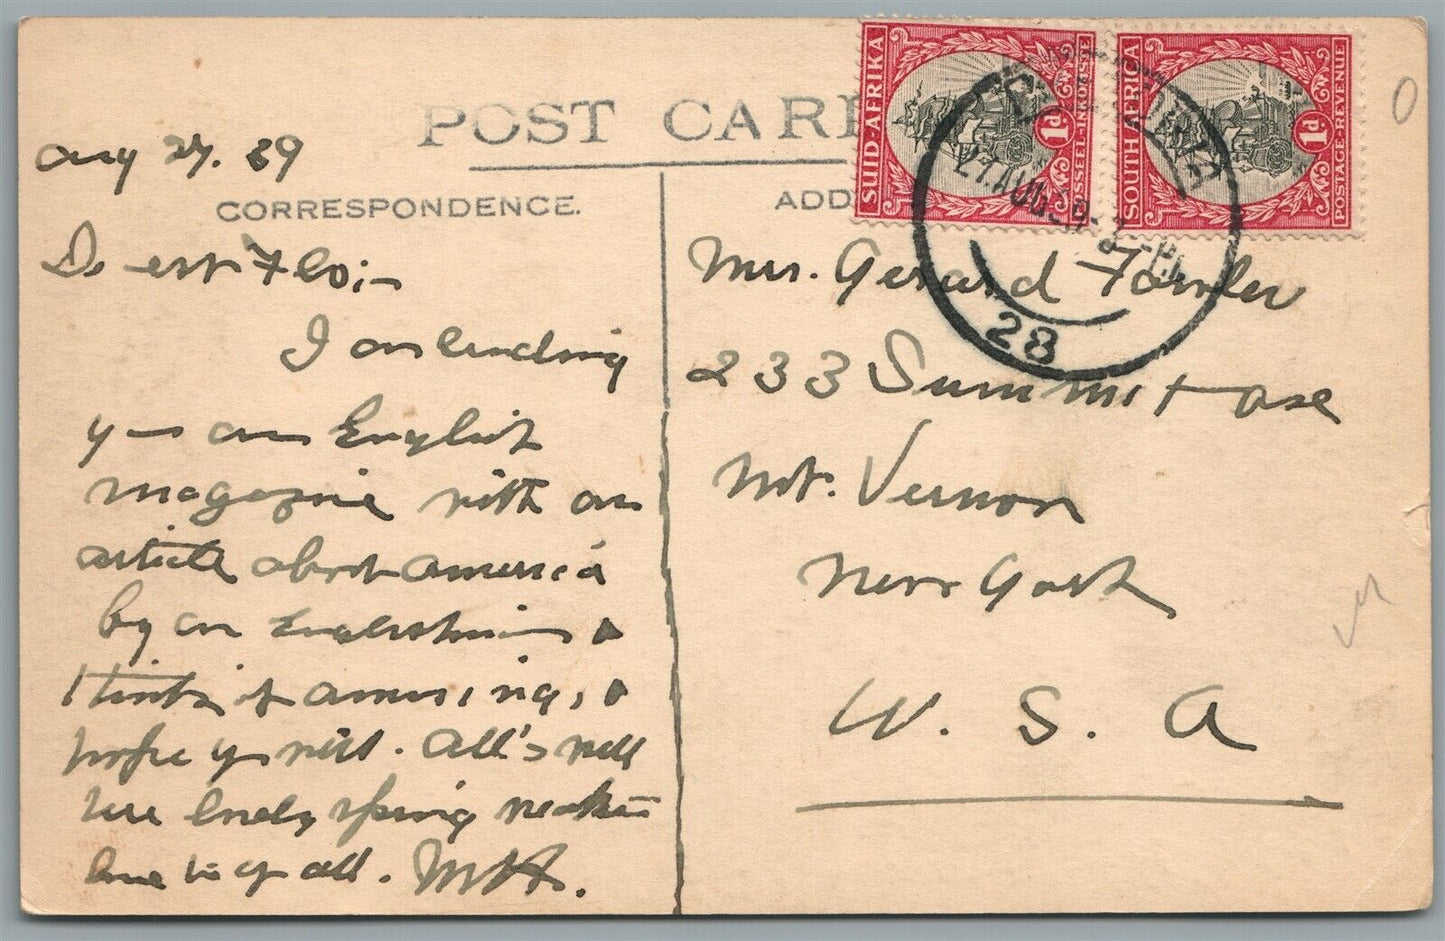 POST CAR
Aug 27. 39
CORRESPONDENCE.
Dearest Floi,-
I am sending
you an English
magazine with an
article about America
by an Englishman
I think it amusing,
hope you will. All's well
here lovely spring weather
love to you all. MH.
ADD
Mrs. Gerard Fowler
233 Summit Ave
Mt. Vernon
New York
U. S. A
SUID-AFRIKA
1d
POSSEEL-INKOMSTE
SOUTH AFRICA
1d
POSTAGE-REVENUE
27. AUG 39
28